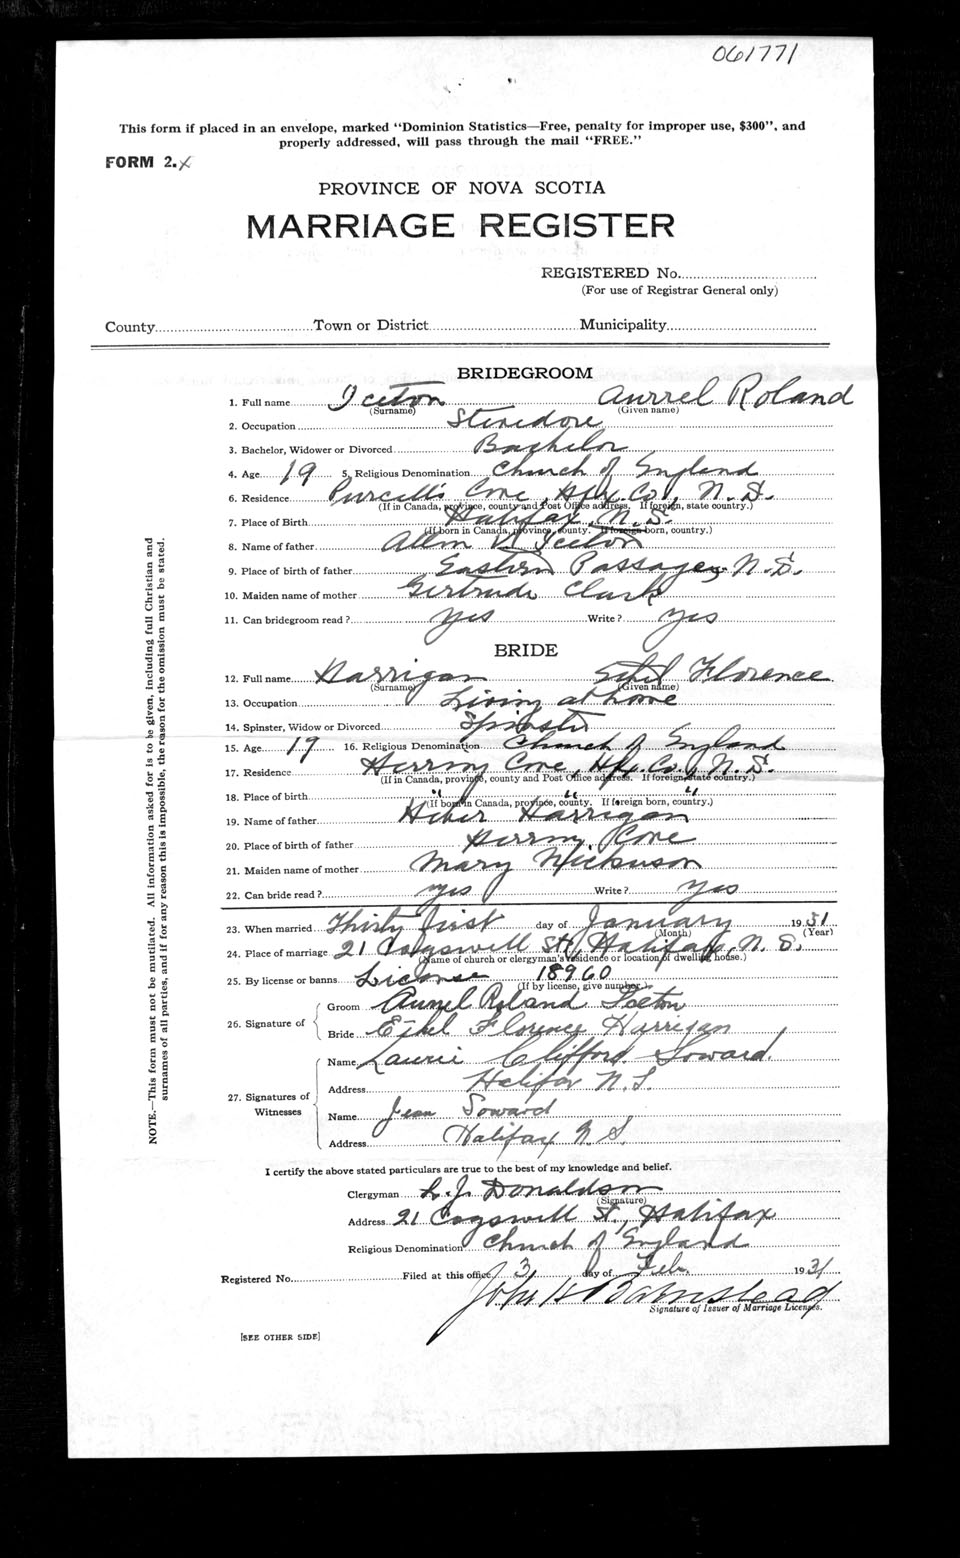 061771
This form if placed in an envelope, marked "Dominion Statistics—Free, penalty for improper use, $300", and
properly addressed, will pass through the mail "FREE."
FORM 2. X
PROVINCE OF NOVA SCOTIA
MARRIAGE REGISTER
REGISTERED No.
(For use of Registrar General only)
County Town or District Municipality
BRIDEGROOM
1. Full name Iceton Aurrel Roland
(Surname) (Given name)
2. Occupation Stevedore
3. Bachelor, Widower or Divorced Bachelor
4. Age 19 5. Religious Denomination Church of England
6. Residence Purcell's Cove, Hfx. Co., N.S.
(If in Canada, province, county and Post Office address. If foreign, state country.)
7. Place of Birth Halifax, N.S.
(If born in Canada, province, county. If foreign born, country.)
8. Name of father Allen V. Iceton
9. Place of birth of father Eastern Passage, N.S.
10. Maiden name of mother Gertrude Clark
11. Can bridegroom read? yes Write? yes
BRIDE
12. Full name Harrigan Ethel Florence
(Surname) (Given name)
13. Occupation Living at home
14. Spinster, Widow or Divorced Spinster
15. Age 19 16. Religious Denomination Church of England
17. Residence Herring Cove, Hfx. Co., N.S.
(If in Canada, province, county and Post Office address. If foreign, state country.)
18. Place of birth " " "
(If born in Canada, province, county. If foreign born, country.)
19. Name of father Heber Harrigan
20. Place of birth of father Herring Cove
21. Maiden name of mother Mary Nickerson
22. Can bride read? yes Write? yes
23. When married Thirty first day of January 1931
(Month) (Year)
24. Place of marriage 21 Cogswell St., Halifax, N.S.
(Name of church or clergyman's residence or location of dwelling house.)
25. By license or banns License 18960
(If by license, give number.)
26. Signature of Groom Aurrel Roland Iceton
Bride Ethel Florence Harrigan
27. Signatures of Witnesses Name Laurie Clifford Soward
Address Halifax N.S.
Name Jean Soward
Address Halifax N.S.
I certify the above stated particulars are true to the best of my knowledge and belief.
Clergyman L. J. Donaldson
(Signature)
Address 21 Cogswell St., Halifax
Religious Denomination Church of England
Registered No. Filed at this office 3 day of Feb. 1931
John H Barnstead
Signature of Issuer of Marriage Licenses.
[SEE OTHER SIDE]
NOTE.—This form must not be mutilated. All information asked for is to be given, including full Christian and
surnames of all parties, and if for any reason this is impossible, the reason for the omission must be stated.